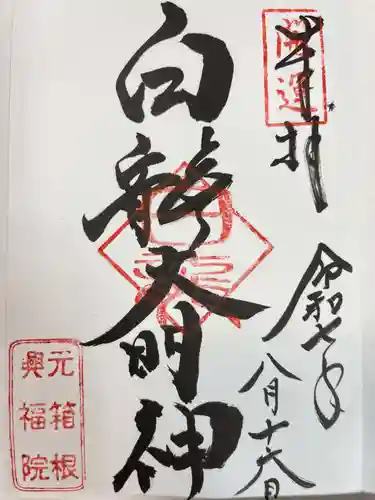 開運
奉拝
令和七年
八月十六日
白龍大明神
元箱根
興福院